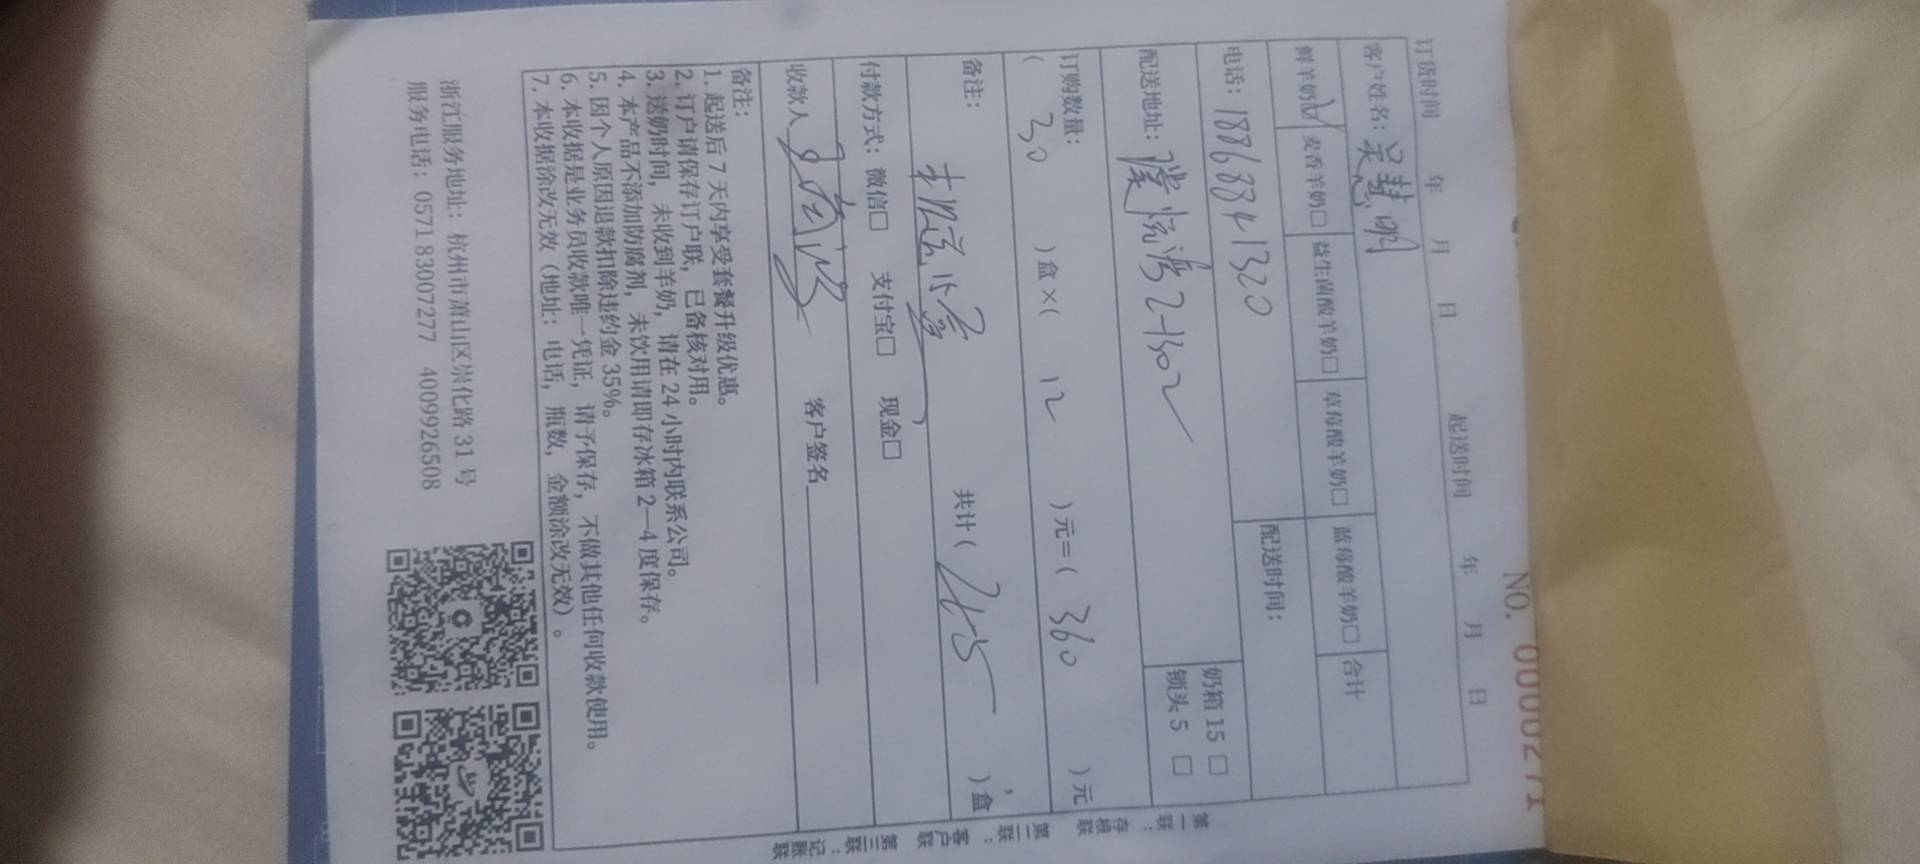 NO. 0000271
订货时间 年 月 日 起送时间 年 月 日
客户姓名：吴慧明
鲜羊奶☑ 麦香羊奶□ 益生菌酸羊奶□ 草莓酸羊奶□ 蓝莓酸羊奶□ 合计
电话：18868841320 配送时间：
配送地址： 2-1302 奶箱 15 □
锁头 5 □
订购数量：
（ 30 ）盒×（ 12 ）元＝（ 360 ）元，
备注： 共计（ ）盒
付款方式：微信□ 支付宝□ 现金□
收款人 客户签名
备注：
1. 起送后 7 天内享受套餐升级优惠。
2. 订户请保存订户联，已备核对用。
3. 送奶时间，未收到羊奶，请在 24 小时内联系公司。
4. 本产品不添加防腐剂，未饮用请即存冰箱 2—4 度保存。
5. 因个人原因退款扣除违约金 35%。
6. 本收据是业务员收款唯一凭证，请予保存，不做其他任何收款使用。
7. 本收据涂改无效（地址：电话，瓶数，金额涂改无效）。
浙江服务地址：杭州市萧山区崇化路 31 号
服务电话：0571 83007277 4009926508
第一联：存根联 第二联：客户联 第三联：记账联